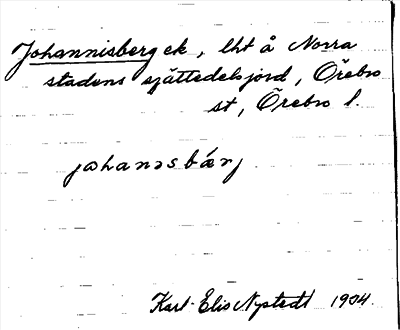 Johannisberg ek, lht å Norra
stadens sjättedelsjord, Örebro
st, Örebro l.
johanəsbärj
Karl-Elis Nystedt 1904.